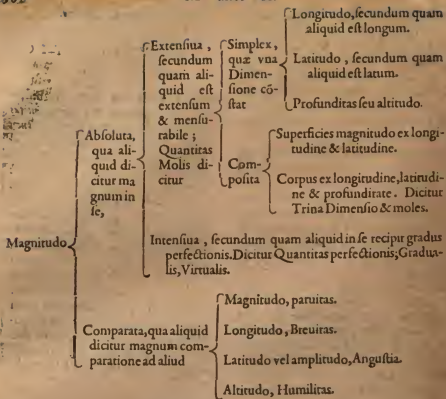 Magnitudo
Absoluta,
qua ali-
quid di-
citur ma
gnum in
se,
Extensiua,
secundum
quam ali-
quid est
extensum
& mensu-
rabile;
Quantitas
Molis di-
citur
Simplex,
quæ vna
Dimen-
sione cō-
stat
Longitudo, secundum quam
aliquid est longum.
Latitudo, secundum quam
aliquid est latum.
Profunditas seu altitudo.
Com-
posita
Superficies magnitudo ex longi-
tudine & latitudine.
Corpus ex longitudine, latitudi-
ne & profunditate. Dicitur
Trina Dimensio & moles.
Intensiua, secundum quam aliquid in se recipit gradus
perfectionis. Dicitur Quantitas perfectionis; Gradua-
lis, Virtualis.
Comparata, qua aliquid
dicitur magnum com-
paratione ad aliud
Magnitudo, paruitas.
Longitudo, Breuitas.
Latitudo vel amplitudo, Angustia.
Altitudo, Humilitas.